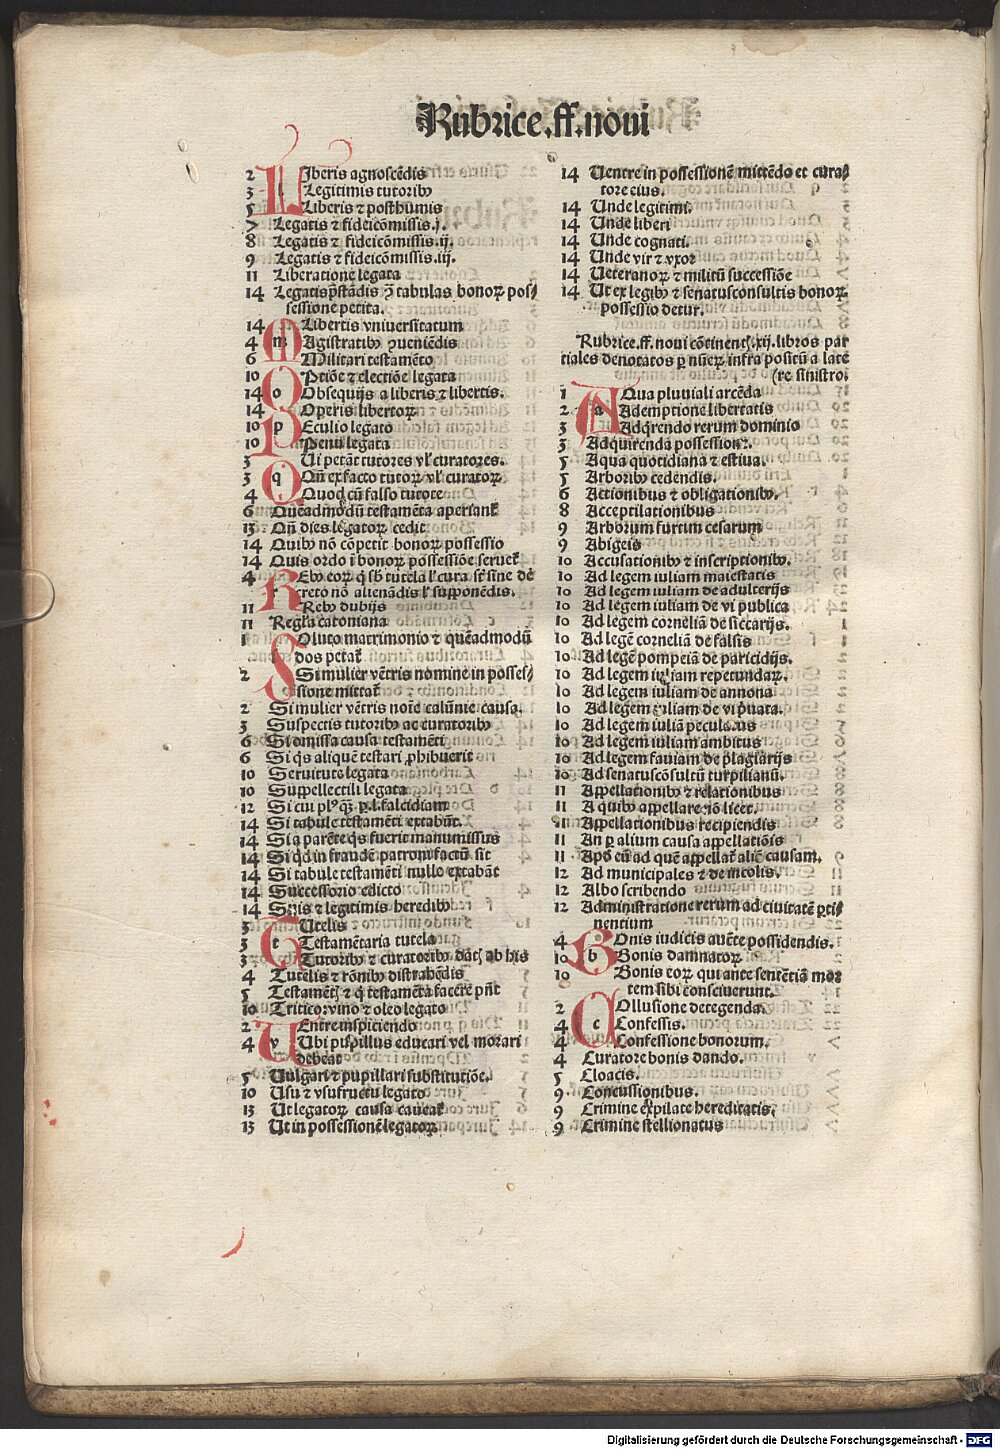 Rubrice.ff.noui
2 LIberis agnoscēdis
3 Legitimis tutoribꝰ
5 Liberis ⁊ posthumis
7 Legatis ⁊ fideicōmissis.j.
8 Legatis ⁊ fideicōmissis.ij.
9 Legatis ⁊ fideicōmissis.iij.
11 Liberatione legata
14 Legatis p̄stādis ꝯ̄ tabulas bonoꝝ pos/
sessione petita.
14 Libertis vniuersitatum
4 MAgistratibꝰ ꝯueniēdis
6 Militari testamēto
10 OPtiōe ⁊ electiōe legata
14 Obsequijs a liberis ⁊ libertis.
14 Operis libertoꝝ
10 PEculio legato
10 Penu legata
3 QUi petāt tutores vl' curatores.
3 Qn̄ ex facto tutoꝝ vl' curatoꝝ
4 Quod cū falso tutore
6 Quēadmodū testamēta aperiant᷑
13 Qn̄ dies legatoꝝ cedit
14 Quibꝰ nō cōpetit bonoꝝ possessio
14 Quis ordo ī bonoꝝ possessiōe seruet᷑
4 REbꝰ eoꝝ q̇ sb̄ tutela l' cura st̄ sine de
creto nō alienādis l' supponēdis.
11 Rebꝰ dubijs
11 Regl'a catoniana
1 SOluto matrimonio ⁊ quēadmodū
dos petat᷑
2 Si mulier vētris nomine in posses/
sione mittat᷑
2 Si mulier vētris noīe calūnie causa.
3 Suspectis tutoribꝰ ac curatoribꝰ
6 Si omissa causa testamēti
6 Si q̇s aliquē testari ꝓhibuerit
10 Seruitute legata
10 Suppellectili legata
12 Si cui plꝰ q̄ꝫ ꝑ.l.falcidiam
14 Si tabule testamēti extabūt.
14 Si a parēte q̇s fuerit manumissus
14 Si qd in fraudē patroni factū sit
14 Si tabule testamēti nulle extabāt
14 Successorio edicto
14 Suis ⁊ legitimis heredibꝰ
3 TUtelis
3 Testamētaria tutela
3 Tutoribꝰ ⁊ curatoribꝰ datꝭ ab his
4 Tutelis ⁊ rōnibꝰ distrahēdis
5 Testamētꝭ ⁊ q̇ testamēta facere pn̄t
10 Tritico: vino ⁊ oleo legato
2 UEntre inspiciendo
4 Ubi pupillus educari vel morari
debeat
5 Uulgari ⁊ pupillari substitutiōe.
10 Usu ⁊ vsufructu legato
13 Ut legatoꝝ causa caueat᷑
13 Ut in possessionē legatoꝝ
14 Uentre in possessionē mittēdo et cura/
tore eius.
14 Unde legitimi.
14 Unde liberi
14 Unde cognati.
14 Unde vir ⁊ vxor
14 Ueteranoꝝ ⁊ militū successiōe
14 Ut ex legibꝰ ⁊ senatusconsultis bonoꝝ
possessio detur.
Rubrice.ff.noui cōtinentꝭ.xij.libros par
tiales denotatos ꝑ nūeꝝ infra positū a late
(re sinistro.
1 AQua pluuiali arcēda
2 Ademptione libertatis
3 Adq̇rendo rerum dominio
3 Adquirenda possessione.
5 Aqua quotidiana ⁊ estiua.
5 Arboribꝰ cedendis.
6 Actionibus ⁊ obligationibꝰ.
8 Acceptilationibus
9 Arborum furtim cesarum
9 Abigeis
10 Accusationibꝰ ⁊ inscriptionibꝰ.
10 Ad legem iuliam maiestatis
10 Ad legem iuliam de adulterijs
10 Ad legem iuliam de vi publica
10 Ad legem corneliā de siccarijs.
10 Ad legē corneliā de falsis
10 Ad legē pompeiā de paricidijs.
10 Ad legem iuliam repetundaꝝ.
10 Ad legem iuliam de annona
10 Ad legem iuliam de vi pͥuata.
10 Ad legem iuliā peculatus
10 Ad legem iuliam ambitus
10 Ad legem fauiam de plagiarijs
10 Ad senatuscōsultū turpilianū.
11 Appellationibꝰ ⁊ relationibus
11 A quibꝰ appellare nō licet.
11 Appellationibus recipiendis
11 An ꝑ alium causa appellatiōis
11 Apđ eū ad quē appellat᷑ aliē causam.
12 Ad municipales ⁊ de incolis.
12 Albo scribendo
12 Administratione rerum ad ciuitatē ꝑti/
nentium
4 BOnis iudicis aucte possidendis.
10 Bonis damnatoꝝ
10 Bonis eoꝝ qui ante sentētiā mor
tem sibi consciuerunt.
2 COllusione detegenda.
4 Confessis.
4 Confessione bonorum.
4 Curatore bonis dando.
5 Cloacis.
9 Concussionibus.
9 Crimine expilate hereditatis.
9 Crimine stellionatus
Digitalisierung gefördert durch die Deutsche Forschungsgemeinschaft - DFG